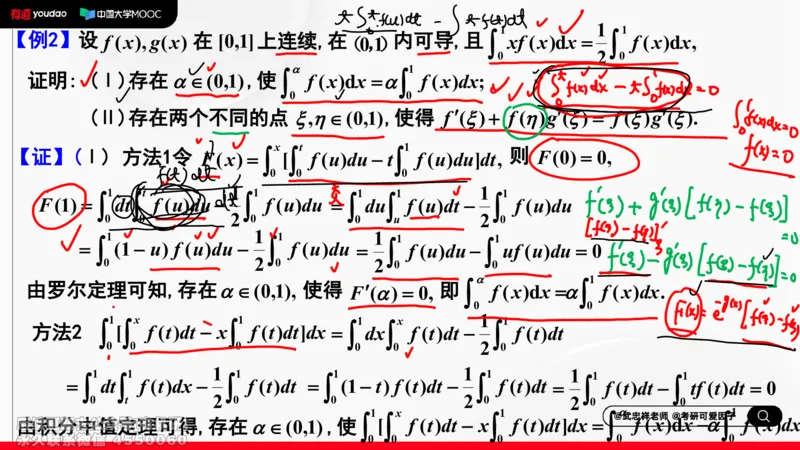 有道 youdao 中国大学MOOC
x∫₀ˣf(u)dt − ∫₀ˣtf(t)dt
【例2】设 f(x),g(x) 在 [0,1] 上连续,在 (0,1) 内可导,且 ∫₀¹xf(x)dx=½∫₀¹f(x)dx,
证明:(Ⅰ)存在 α∈(0,1),使 ∫₀^α f(x)dx=α∫₀¹f(x)dx;
∫₀ˣf(x)dx − x∫₀¹f(x)dx=0
∫₀¹f(x)dx=0
(Ⅱ)存在两个不同的点 ξ,η∈(0,1),使得 f′(ξ)+f(η)g′(ξ)=f(ξ)g′(ξ).
f(x)=0
【证】(Ⅰ) 方法1令 F(x)=∫₀ˣ[∫₀ᵗf(u)du−t∫₀¹f(u)du]dt, 则 F(0)=0,
F(1)=∫₀¹dt∫₀ᵗf(u)du−½∫₀¹f(u)du=∫₀¹du∫ᵤ¹f(u)dt−½∫₀¹f(u)du
f′(ξ)+g′(ξ)[f(η)−f(ξ)]=0
[f(ξ)−f(η)]′
=∫₀¹(1−u)f(u)du−½∫₀¹f(u)du=½∫₀¹f(u)du−∫₀¹uf(u)du=0
f′(ξ)−g′(ξ)[f(ξ)−f(η)]=0
由罗尔定理可知,存在 α∈(0,1), 使得 F′(α)=0, 即 ∫₀^α f(x)dx=α∫₀¹f(x)dx.
方法2 ∫₀¹[∫₀ˣf(t)dt−x∫₀¹f(t)dt]dx=∫₀¹dx∫₀ˣf(t)dt−½∫₀¹f(t)dt
=∫₀¹dt∫ₜ¹f(t)dx−½∫₀¹f(t)dt=∫₀¹(1−t)f(t)dt−½∫₀¹f(t)dt=½∫₀¹f(t)dt−∫₀¹tf(t)dt=0
由积分中值定理可得,存在 α∈(0,1),使 ∫₀¹[∫₀ˣf(t)dt−x∫₀¹f(t)dt]dx=∫₀^α f(x)dx−α∫₀¹f(x)dx
@武忠祥老师 @考研可爱因子
永久联系微信 4550060